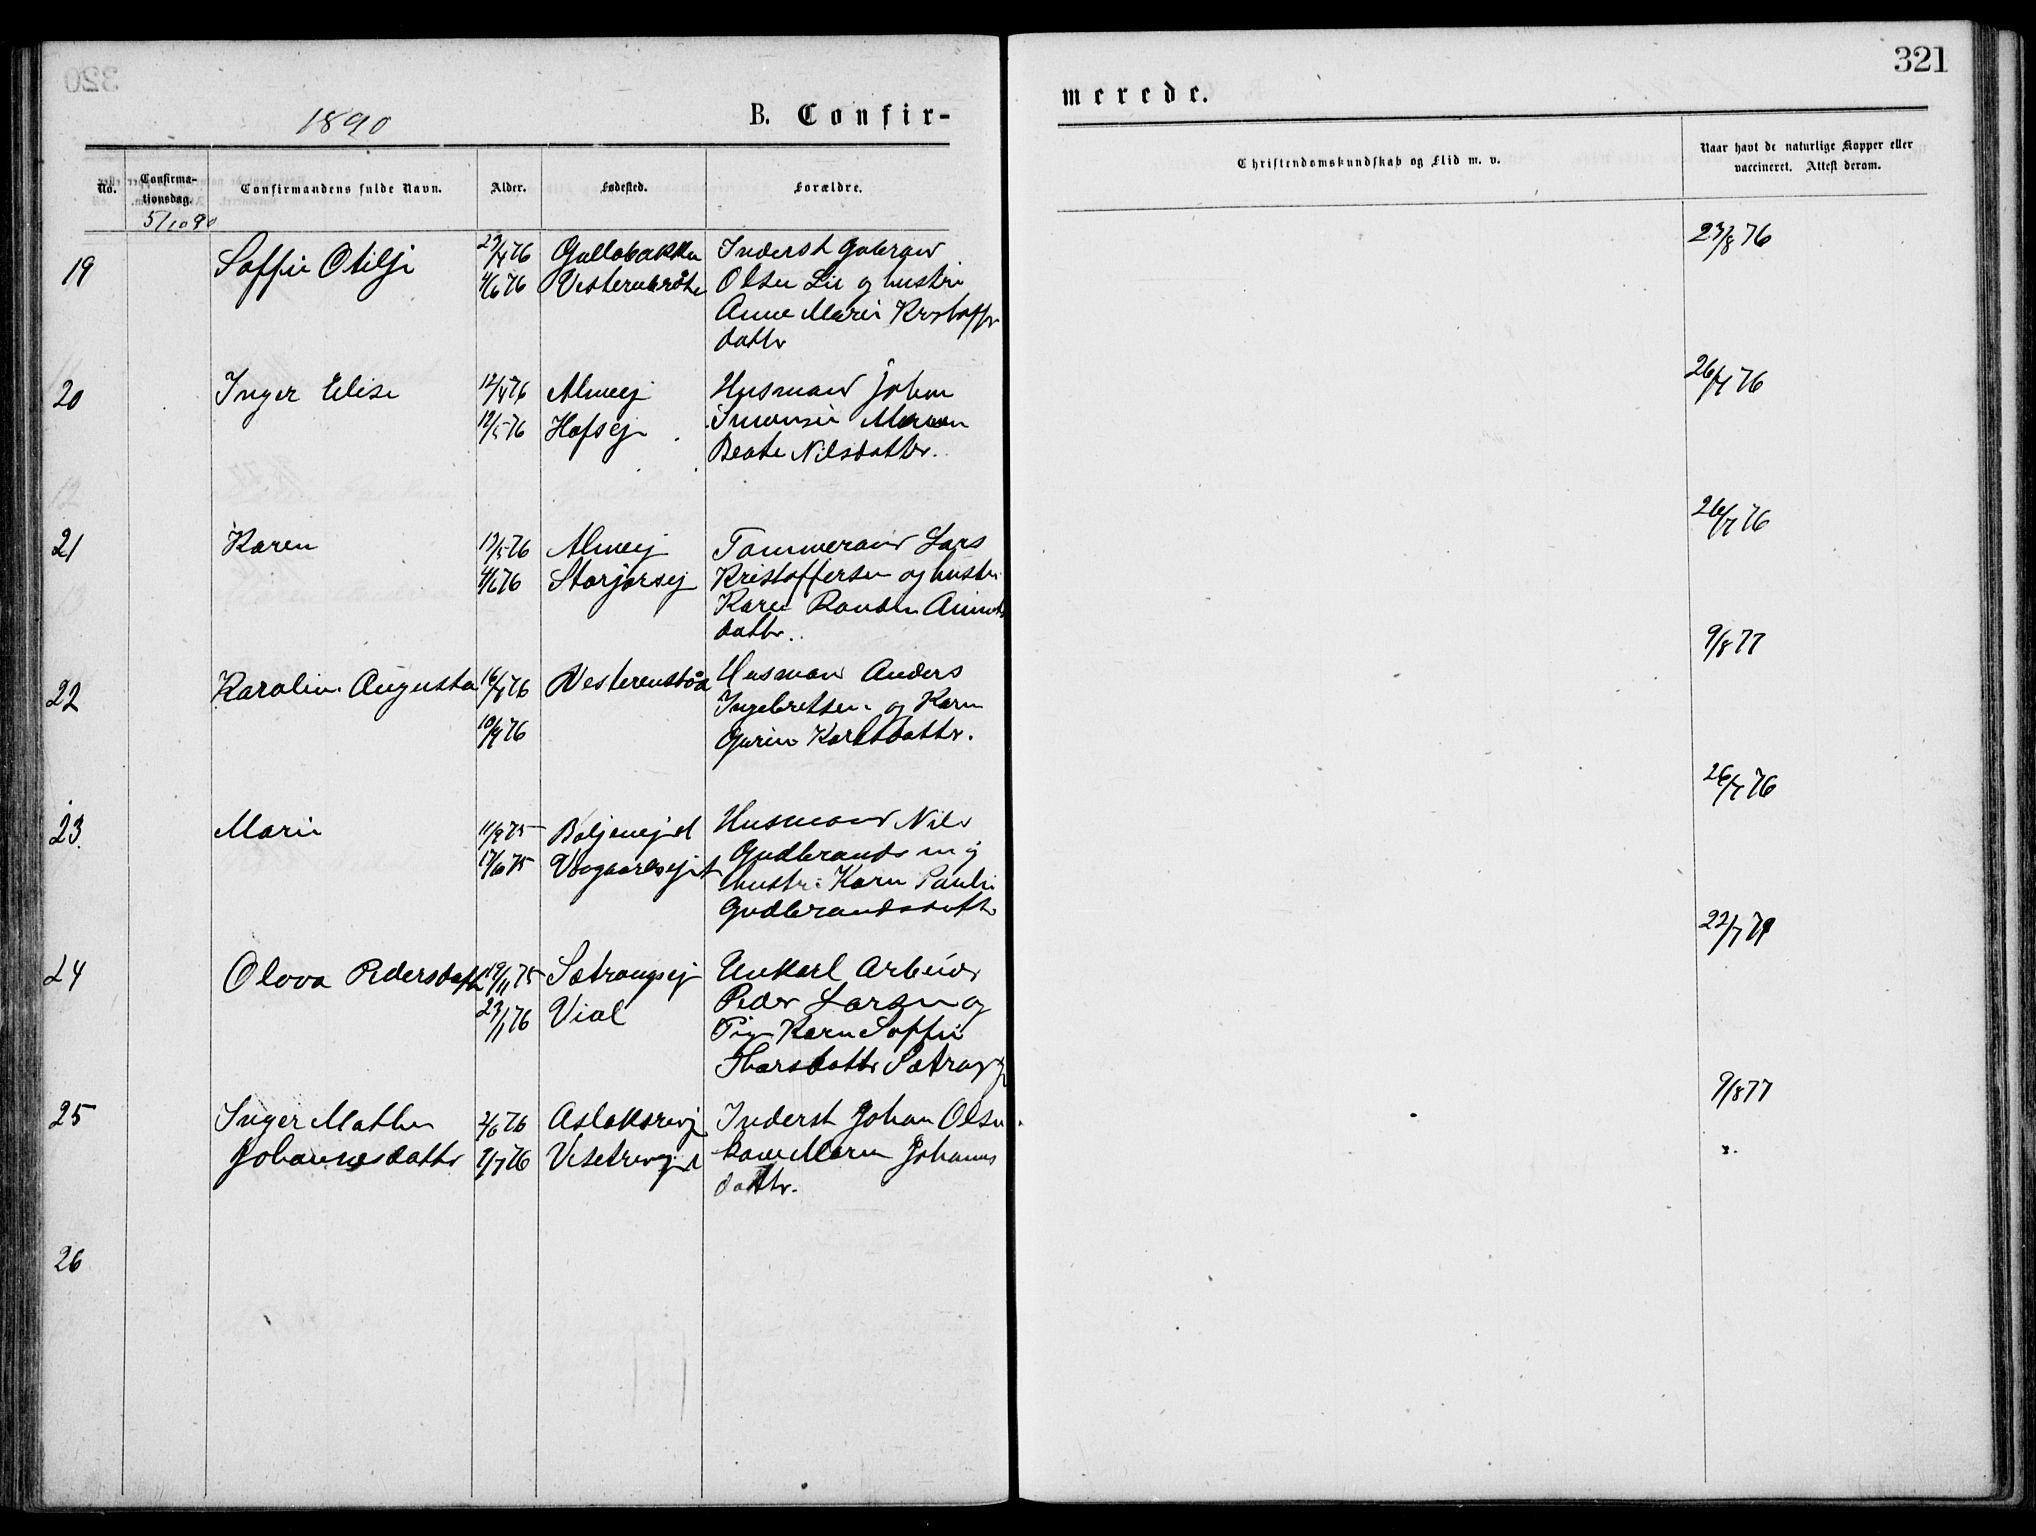 321
1890
B. Confir-
merede.
No.
Confirma-
tionsdag.
Confirmandens fulde Navn.
Alder.
Fødested.
Forældre.
Christendomskundskab og Flid m. v.
Naar havt de naturlige Kopper eller
vaccineret. Attest derom.
5/10 90
19 Soffie Otilje 29/4 76 Gullobakken Inderst Gulbrand 23/8 76
4/6 76 Vesternbråte Olsen Lie og hustru
Anne Marie Kristoffer
datter
20 Inger Elise 12/4 76 Almej Husmand Johan 26/7 76
12/5 76 Hofsej Simonsen Maren
Beate Nilsdatter.
21 Karen 13/5 76 Almej Tømmermand Lars 26/7 76
4/6 76 Storjorsej Kristoffersen og hustru
Karen Randine
datter.
22 Karoline Augusta 16/8 76 Husmand Anders 9/8 77
10/9 76 Ingebretsen og Karen
Gurine Karlsdatter.
23 Marie 11/9 75 Boljenejd Husmand Nils 26/7 76
17/10 75 Vagaardsejet Gudbrandsen og
hustru Karen Pauline
Gudbrandsdatter
24 Olova Pedersdatter 19/11 75 Sætrangsej Unkarl Arbeider 22/7 79
23/1 76 Viol Peder Larsen og
Pige Karen Soffie
Thorsdatter Sætrang
25 Inger Mathea 2/6 76 Aslaksrej Inderst Johan Olsen 9/8 77
Johannesdatter 9/7 76 kone Maren Johannes
datter.
26